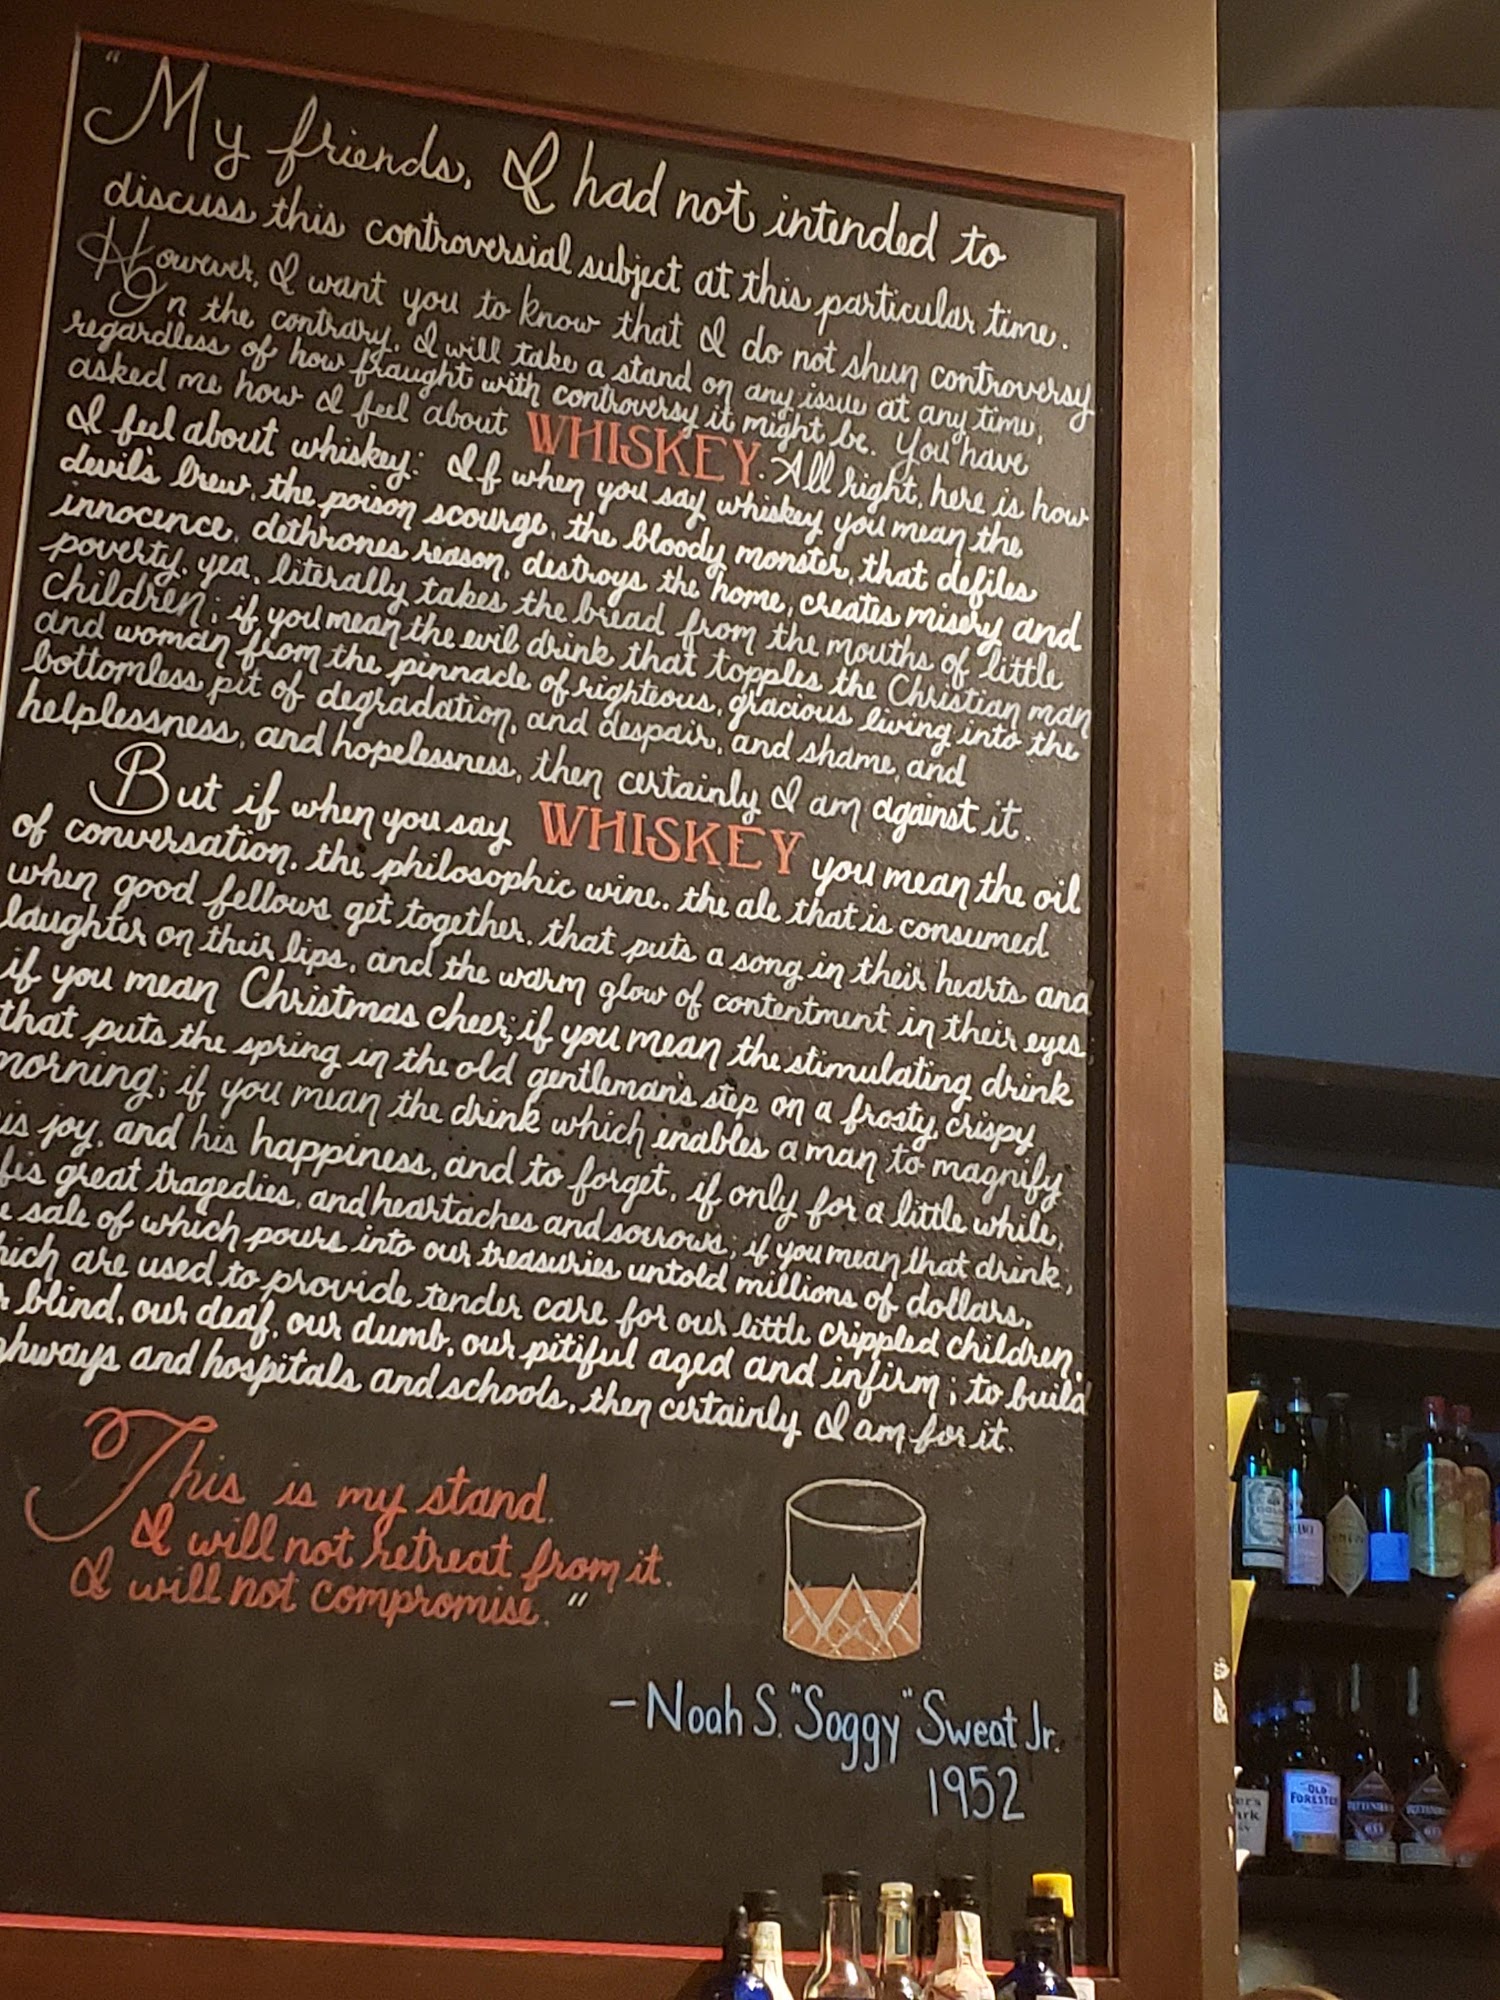 "My friends, I had not intended to
discuss this controversial subject at this particular time.
However, I want you to know that I do not shun controversy.
On the contrary, I will take a stand on any issue at any time,
regardless of how fraught with controversy it might be. You have
asked me how I feel about WHISKEY. All right, here is how
I feel about whiskey: If when you say whiskey you mean the
devil's brew, the poison scourge, the bloody monster, that defiles
innocence, dethrones reason, destroys the home, creates misery and
poverty, yea, literally takes the bread from the mouths of little
children; if you mean the evil drink that topples the Christian man
and woman from the pinnacle of righteous, gracious living into the
bottomless pit of degradation, and despair, and shame, and
helplessness, and hopelessness, then certainly I am against it.
But if when you say WHISKEY you mean the oil
of conversation, the philosophic wine, the ale that is consumed
when good fellows get together, that puts a song in their hearts and
laughter on their lips, and the warm glow of contentment in their eyes;
if you mean Christmas cheer; if you mean the stimulating drink
that puts the spring in the old gentleman's step on a frosty, crispy
morning; if you mean the drink which enables a man to magnify
is joy, and his happiness, and to forget, if only for a little while,
fe's great tragedies, and heartaches and sorrows; if you mean that drink,
e sale of which pours into our treasuries untold millions of dollars,
hich are used to provide tender care for our little crippled children,
r blind, our deaf, our dumb, our pitiful aged and infirm; to build
ghways and hospitals and schools, then certainly I am for it.
This is my stand.
I will not retreat from it.
I will not compromise."
-Noah S. "Soggy" Sweat Jr.
1952
OLD
FORESTER